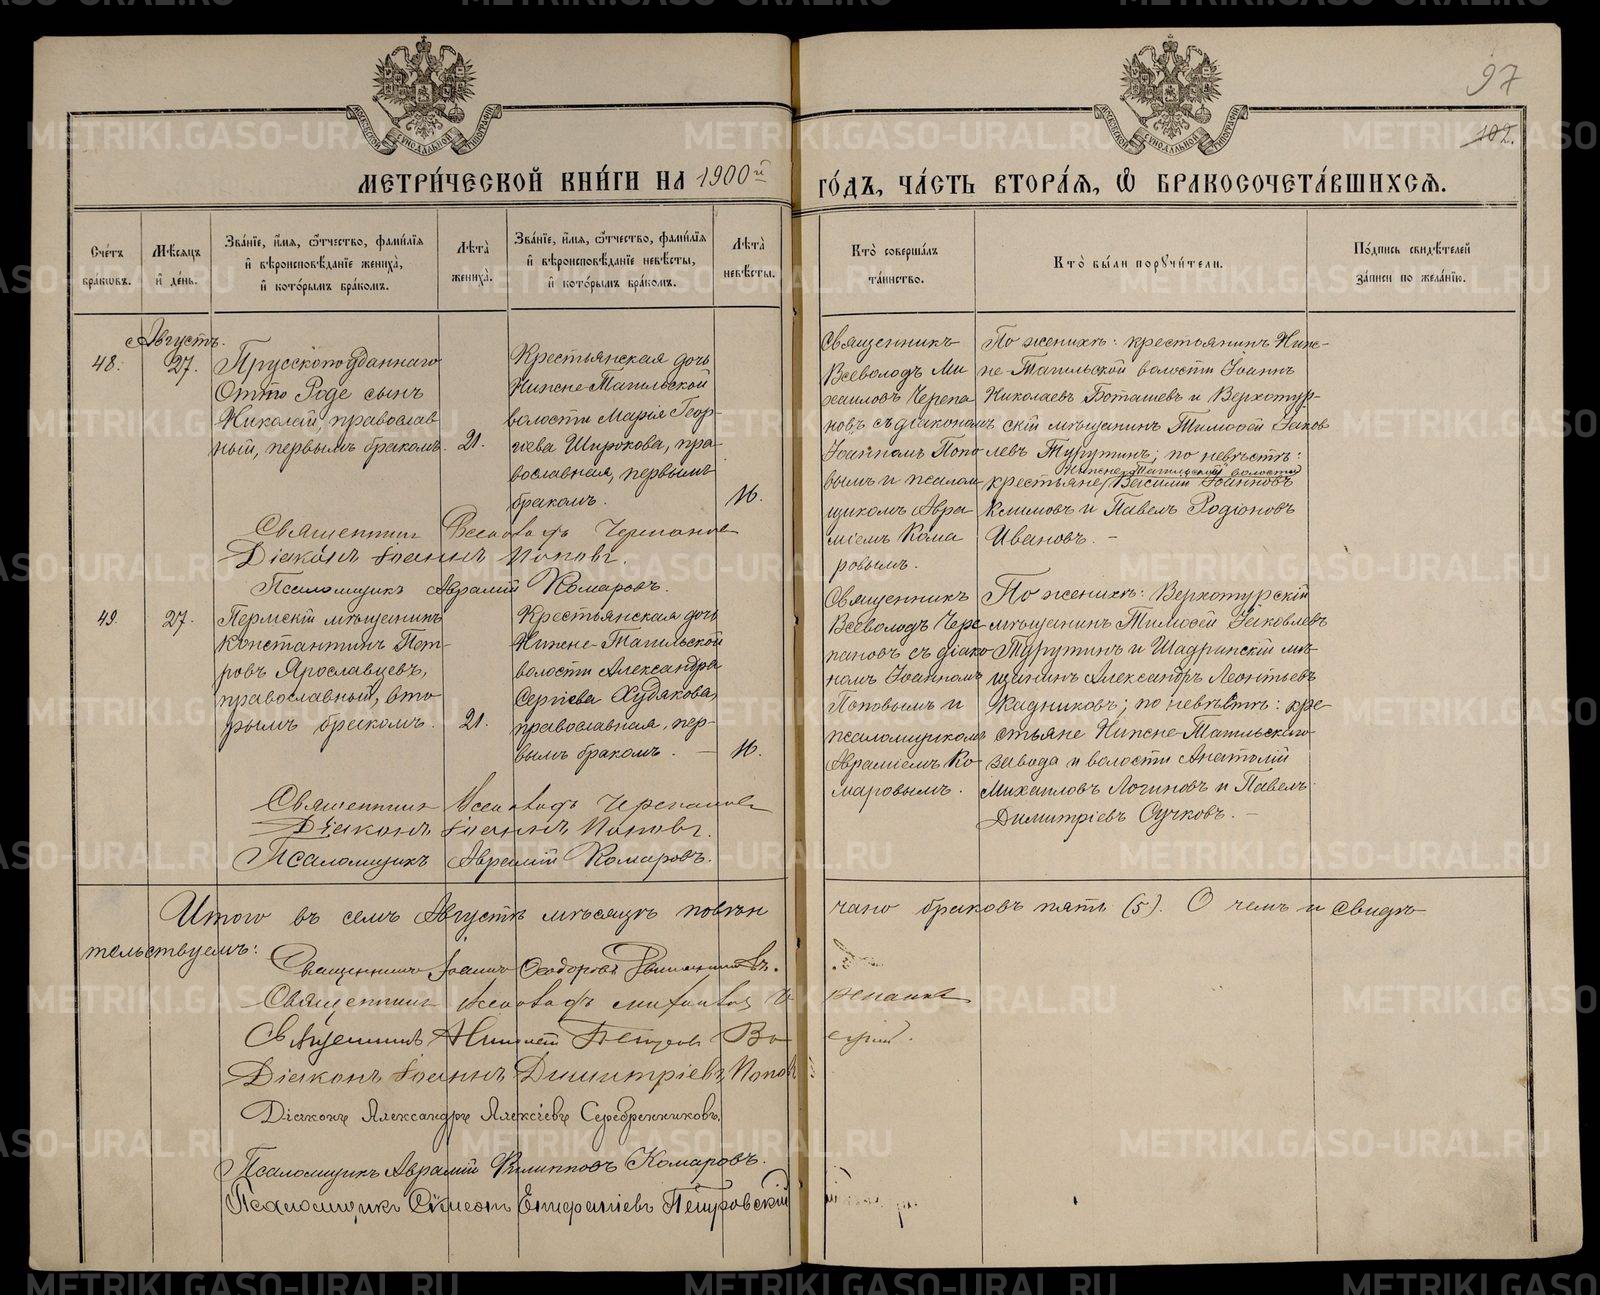 97
102.
МЕТРИ́ЧЕСКОЙ КНИ́ГИ НА 1900й ГО́ДЪ, ЧА́СТЬ ВТОРА́Я, Ѡ БРАКОСОЧЕТА́ВШИХСЯ.
Сче́тъ браковъ.
Мѣ́сяцъ и де́нь.
Зва́нїе, и́мя, ѻ҆́тчество, фами́лїя и вѣроисповѣ́данїе жениха̀, и кото́рымъ бра́комъ.
Лѣта̀ жениха̀.
Зва́нїе, и́мя, ѻ҆́тчество, фами́лїя и вѣроисповѣ́данїе невѣ́сты, и кото́рымъ бра́комъ.
Лѣта̀ невѣ́сты.
Кто̀ соверша́лъ та́инство.
Кто̀ бы́ли поручи́тели.
По́дпись свидѣ́телей за́писи по жела́нїю.
Августъ.
48. 27.
Прусскоподданнаго
Отто Роде сынъ
Николай, православ
ный, первымъ бракомъ. 21.
Крестьянская дочь
Нижне-Тагильской
волости Марія Геор-
гіева Широкова, пра-
вославная, первымъ
бракомъ. 16.
Священникъ
Всеволодъ Ми
хаиловъ Черепа
новъ съ діакономъ
Іоанномъ Попо
вымъ и псалом
щикомъ Авра
міемъ Кома
ровымъ.
По женихѣ: крестьянинъ Ниж-
не-Тагильской волости Іоаннъ
Николаевъ Боташевъ и Верхотур-
скій мѣщанинъ Тимоѳей Іаков
левъ Турутинъ; по невѣстѣ:
Нижне-Тагильской волости
крестьяне Василій Іоанновъ
Климовъ и Павелъ Родіоновъ
Ивановъ. -
Священникъ Всеволодъ Черепановъ
Діаконъ Іоаннъ Поповъ.
Псаломщикъ Аврамій Комаровъ.
49. 27.
Пермскій мѣщанинъ
Константинъ Пет-
ровъ Ярославцевъ,
православный, вто
рымъ бракомъ. 21.
Крестьянская дочь
Нижне-Тагильской
волости Александра
Сергіева Худякова,
православная, пер-
вымъ бракомъ. — 16.
Священникъ
Всеволодъ Чере
пановъ съ діако
номъ Іоанномъ
Поповымъ и
псаломщикомъ
Авраміемъ Ко
маровымъ.
По женихѣ: Верхотурскій
мѣщанинъ Тимоѳей Іаковлевъ
Турутинъ и Шадринскій мѣ-
щанинъ Александръ Леонтьевъ
Кадниковъ; по невѣстѣ: кре
стьяне Нижне-Тагильскаго
завода и волости Анатолій
Михаиловъ Логиновъ и Павелъ
Димитріевъ Сучковъ. -
Священникъ Всеволодъ Черепановъ
Діаконъ Іоаннъ Поповъ.
Псаломщикъ Аврамій Комаровъ.
Итого въ семъ Августѣ мѣсяцѣ повѣн чано браковъ пять (5). О чемъ и свидѣ
тельствуемъ:
Священникъ Іоаннъ Ѳеодоровъ
Священникъ Всеволодъ Михаиловъ Че репановъ
Священникъ Николай Петровъ
Діаконъ Іоаннъ Димитріевъ Поповъ
Діаконъ Александръ Алексіевъ Серебренниковъ.
Псаломщикъ Аврамій Филипповъ Комаровъ.
Псаломщикъ Сѷмеонъ Епифаніевъ Петровскій